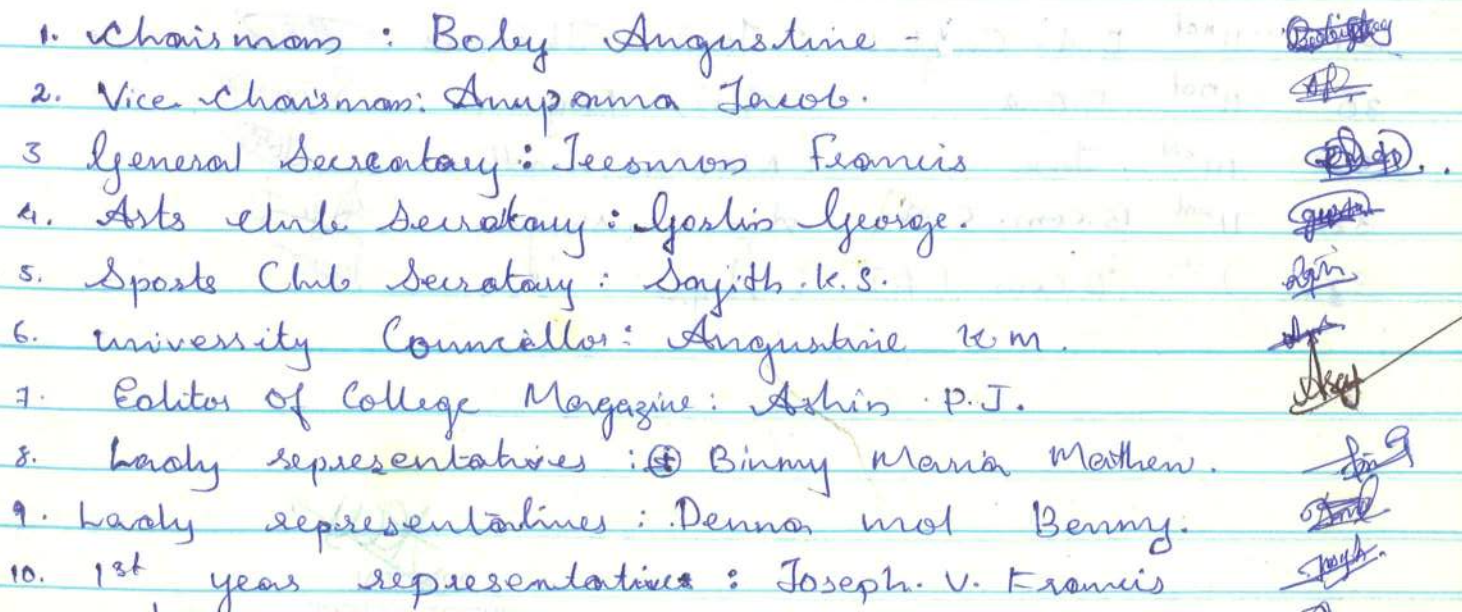 1. Chairman : Boby Augustine -
2. Vice Chairman: Anupama Jacob.
3 General Secreatary : Jeesmon Francis
4. Arts Club Secratary : Goslin George.
5. Sports Club Secratary : Sayith. K. S.
6. University Councellor: Augustine K M.
7. Editor of College Magazine: Ashin P. J.
8. Lady representatives : Binmy Maria Mathew.
9. Lady representatives : Denna mol Benny.
10. 1st year representatives : Joseph. V. Francis